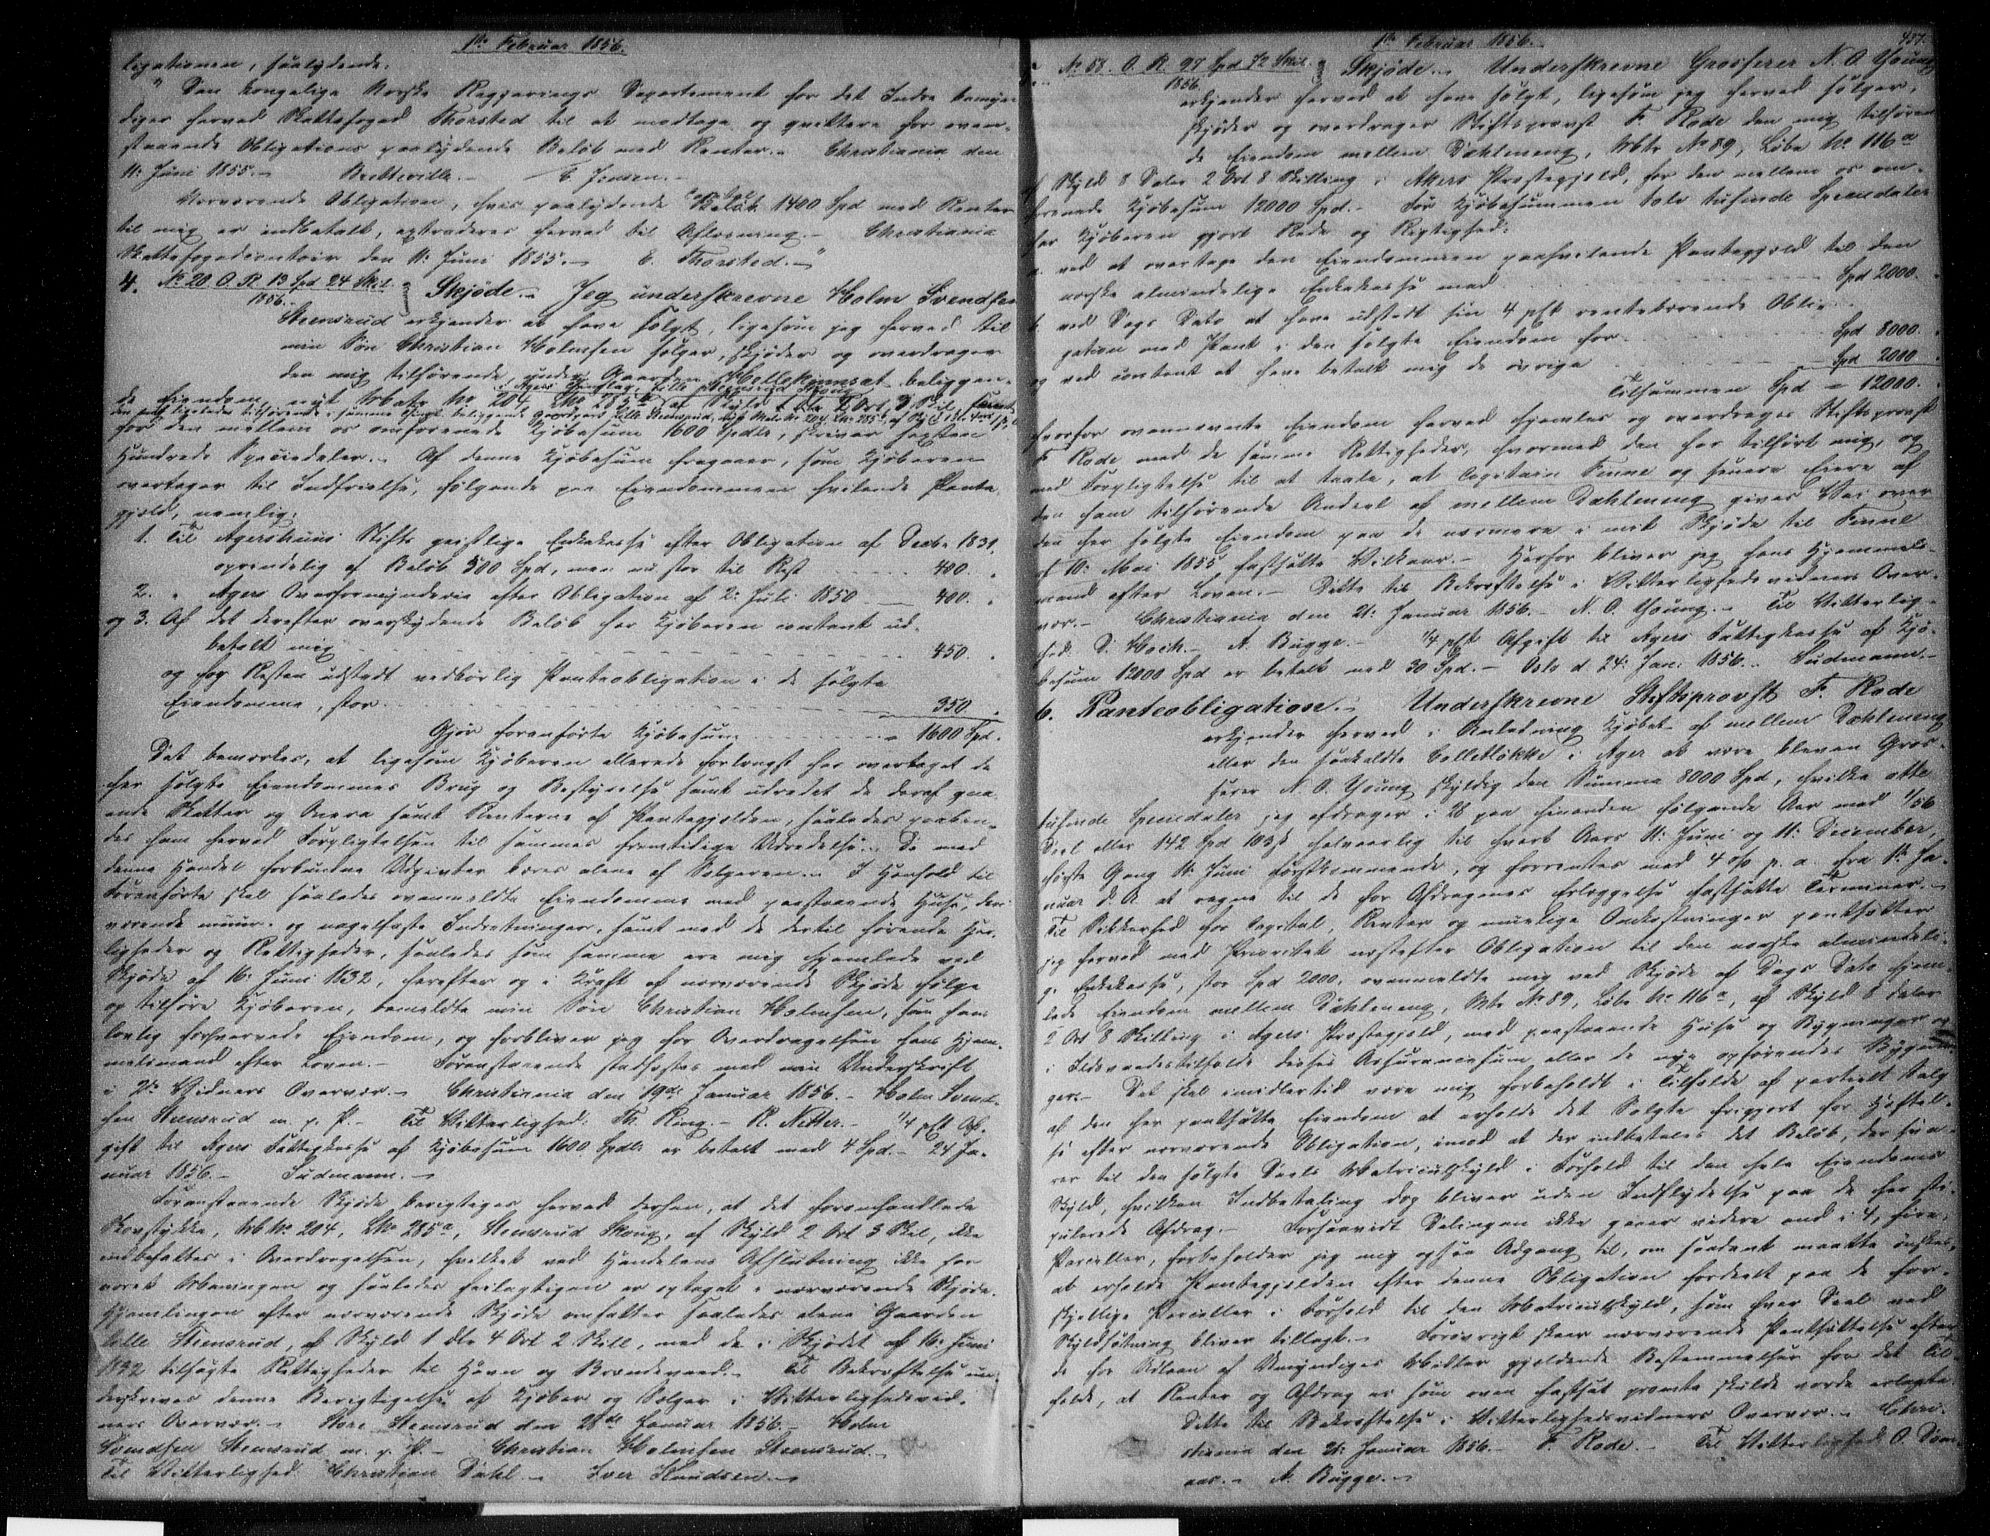 1ste Februar 1856.
ligationen, saalydende:
"Den kongelige Norske Regjerings Departement for det Indre bemyn-
diger herved Skattefoged Thorsted til at modtage og qvittere for oven-
staaende Obligations paalydende Beløb med Renter. Christiania den
11. Juni 1855. Bretteville. E. Jensen.
Nærværende Obligation, hvis paalydende Beløb 1400 Spd med Renter
til mig er indbetalt, extraderes herved til Aflæsning. Christiania
Skattefogedcontoir den 11. Juni 1855. E. Thorsted."
4. No 20 O. R. 13 Spd 24 Skil. 1856. Skjøde. Jeg underskrevne Holm Svendsen
Stensrud erkjender at have solgt, ligesom jeg herved til
min Søn Christian Holmsen sælger, skjøder og overdrager
den mig tilhørende under Gaarden beliggen-
de Eiendom, nyt Matr No 204 Lno 285a af Skyld 2 Ort 3 Skil
for den mellem os omforenede Kjøbesum 1600 Spdlr, skriver sexten
Hundrede Speciedaler. Af denne Kjøbesum fragaaer, som Kjøberen
overtager til Indfrielse, følgende paa Eiendommen hvilende Pante-
gjæld, nemlig:
1. Til Agershuus Stifts geistlige Enkekasse efter Obligation af Decbr 1831.
oprendelig af Beløb 500 Spd, men nu stor til Rest 400.
2. " Agers Overformynderie efter Obligation af 2. Juli 1850 400.
og 3. Af det derefter overskydende Beløb har Kjøberen contant ud-
betalt mig 450
og for Resten udstedt vedbørlig Panteobligation i de solgte
Eiendomme, stor 350
Gjør foranførte Kjøbesum 1600 Spd.
Det bemærkes, at ligesom Kjøberen allerede forlængst har overtaget de
her solgte Eiendommes Brug og Bestyrelse samt udredet de deraf gaa-
ende Skatter og Onera samt Renterne af Pantegjælden, saaledes paahen-
des ham herved Forpligtelsen til sammes fremtidige Udredelse. De med
denne Handel forbundne Udgivter bæres alene af Sælgeren. I Henhold til
Foranførte skal saaledes ovenmeldte Eiendomme med paastaaende Huse, der-
værende muur- og nagelfaste Indretninger, samt med de dertil hørende Her-
ligheder og Rettigheder, saaledes som samme ere mig hjemlede ved
Skjøde af 16. Juni 1832, herefter og i Kraft af nærværende Skjøde følge
og tilhøre Kjøberen, bemeldte min Søn Christian Holmsen, som hans
lovlig forhvervede Eiendom, og forbliver jeg for Overdragelsen hans Hjem-
melsmand efter Loven. Foranstaaende stadfæstes med min Underskrift
i 2de Vidners Overvær. Christiania den 19de Januar 1856. Holm Svend-
sen Stensrud m. p. P. Til Vitterlighed: Th. Ring. R. Netter. 1/4 pCt Af-
gift til Agers Fattigkasse af Kjøbesum 1600 Spdlr er betalt med 4 Spd. 24 Ja-
nuar 1856. Sudmann.
Foranstaaende Skjøde berigtiges herved derhen, at det foromhandlede
Skovstykke, M No 204, Lno 285a, Stensrud Skoug, af Skyld 2 Ort 3 Skil, ikke
indbefattes i Overdragelsen, hvilket ved Handelens Afslutning ikke har
været Meningen og saaledes feilagtigen er optaget i nærværende Skjøde.
Hjemlingen efter nærværende Skjøde omfatter saaledes alene Gaarden
lille Stensrud, af Skyld 1 Dlr 4 Ort 2 Skill, med de i Skjødet af 16. Juni
1832 tilsagte Rettigheder til Havn og Brændeved. Til Bekræftelse un-
derskrives denne Berigtigelse af Kjøber og Sælger i Vitterlighedsvid-
ners Overvær. Store Stensrud den 28de Januar 1856. Holm
Svendsen Stensrud m. p. P. Christian Holmsen Stensrud.
Til Vitterlighed Christian Dahl. Iver Knudsen.
1ste Februar 1856.
457.
No 58. O. R. 97 Spd 72 Skil. 1856. Skjøde. Underskrevne Grosserer N. O. Young
erkjender herved at have solgt, ligesom jeg herved sælger,
skjøder og overdrager Stiftsprovst F. Rode den mig tilhøren-
de Eiendom mellem Dahleneng, Matr No 89, Løbe No 116a
af Skyld 8 Daler 2 Ort 8 Skilling i Akers Præstegjeld, for den mellem os om-
forenede Kjøbesum 12000 Spd. For Kjøbesummen tolv tusinde Speciedaler
har Kjøberen gjort Rede og Rigtighed:
a. ved at overtage den Eiendommen paahvilende Pantegjæld til den
norske almindelige Enkekasse med Spd 2000.
b. ved Dags Dato at have udstedt sin 4 pCt rentebærende Obli-
gation med Pant i den solgte Eiendom for Spd 8000.
og ved contant at have betalt mig de øvrige Spd 2000
Tilsammen Spd 12000.
hvorfor ovennævnte Eiendom herved hjemles og overdrages Stiftsprovst
F. Rode med de samme Rettigheder, hvormed den har tilhørt mig, og
med Forpligtelse til at taale, at Capitain Finne og senere Eiere af
den ham tilhørende Andeel af mellem Dahleneng gives Vei over
den her solgte Eiendom paa de nærmere i mit Skjøde til Finne
af 10. Mai 1855 fastsatte Vilkaar. Herfor bliver jeg hans Hjemmels-
mand efter Loven. Dette til Bekræftelse i Vitterlighedsvidners Over-
vær. Christiania den 21. Januar 1856. N. O. Young. Til Vitterlig-
hed: D. Hoch. A. Bugge. 1/4 pCt Afgift til Agers Fattigkasse af Kjø-
besum 12000 Spd er betalt med 30 Spd. Oslo d. 24. Jan. 1856. Sudmann.
6. Panteobligation. Underskrevne Stiftsprovst F. Rode
erkjender herved i Anledning Kjøbet af mellem Dahleneng
eller den saakaldte Colletløkke i Ager at være bleven Gros-
serer N. O. Young skyldig den Summa 8000 Spd, hvilke otte
tusinde Speciedaler jeg afdrager i 28 paa hinanden følgende Aar med 1/56
Deel eller 142 Spd 103 s halvaarlig til hvert Aars 11. Juni og 11. December,
første Gang 11. Juni førstkommende, og forrentes med 4 o/o p. a. fra 1ste Ja-
nuar d. A. at regne til de for Afdragenes Erlæggelse fastsatte Terminer.
Til Sikkerhed for Capital, Renter og muelige Omkostninger pantsætter
jeg herved med Prioritet næstefter Obligation til den norske almindeli-
ge Enkekasse, stor Spd 2000, ovenmeldte mig ved Skjøde af Dags Dato hjem-
lede Eiendom mellem Dahleneng, Mtr No 89, Løbe No 116a, af Skyld 8 Daler
2 Ort 8 Skilling i Agers Præstegjeld, med paastaaende Huse og Bygninger og
i Ildsvaadestilfælde disses Assurancesum eller de nye opførendes Bygnin-
ger. Det skal imidlertid være mig forbeholdt i Tilfælde af partielt Salg
af den her pantsatte Eiendom at erholde det Solgte frigjort for Hæftel-
se efter nærværende Obligation, imod at der indbetales det Beløb, der sva-
rer til den solgte Deels Matriculskyld i Forhold til den hele Eiendoms
Skyld, hvilken Indbetaling dog bliver uden Indflydelse paa de her sti-
pulerede Afdrag. Forsaavidt Delingen ikke gaaer videre end i 4, fire,
Parceller, forbeholder jeg mig ogsaa Adgang til, om saadant maatte ønskes,
at erholde Pantegjælden efter denne Obligation fordeelt paa de for-
skjellige Parceller i Forhold til den Matriculskyld, som hver Deel ved
Skyldsætning bliver tillagt. Forøvrigt skeer nærværende Pantsættelse efter
de for Udlaan af Umyndiges Midler gjældende Bestemmelser for det Til-
fælde, at Renter og Afdrag ei som oven fastsat promte skulde vorde erlagte.
Dette til Bekræftelse i Vitterlighedsvidners Overvær. Chri-
stiania den 21. Januar 1856. F. Rode. Til Vitterlighed: O. Døm-
aas. A. Bugge.